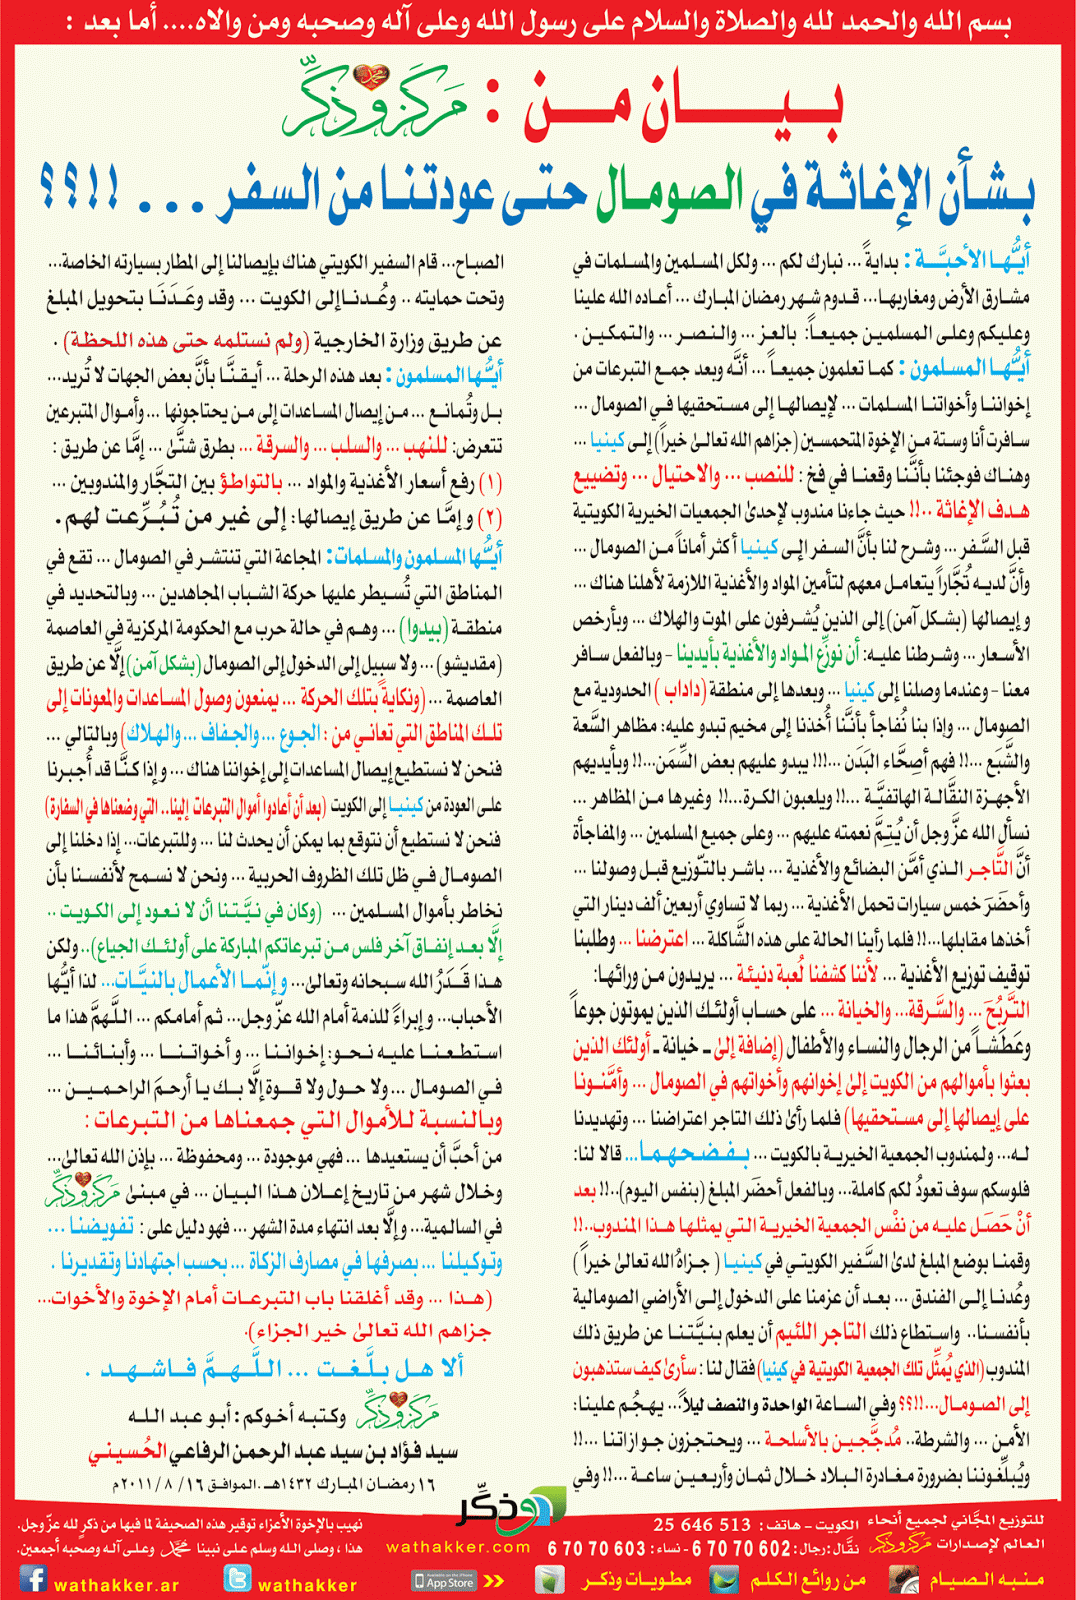 بسم الله والحمد لله والصلاة والسلام على رسول الله وعلى آله وصحبه ومن والاه.... أما بعد :
بيان من : مركز وذكّر
بشأن الإغاثة في الصومال حتى عودتنا من السفر ... !!؟؟
أيُّها الأحبَّة : بدايةً ... نبارك لكم ... ولكل المسلمين والمسلمات في
مشارق الأرض ومغاربها... قدوم شهر رمضان المبارك ... أعاده الله علينا
وعليكم وعلى المسلمين جميعاً: بالعز ... والنصر ... والتمكين .
أيُّها المسلمون : كما تعلمون جميعاً ... أنَّه وبعد جمع التبرعات من
إخواننا وأخواتنا المسلمات ... لإيصالها إلى مستحقيها في الصومال ...
سافرت أنا وستة من الإخوة المتحمسين (جزاهم الله تعالى خيراً) إلى كينيا ...
وهناك فوجئنا بأنَّنا وقعنا في فخ : للنصب ... والاحتيال ... وتضييع
هدف الإغاثة ..!! حيث جاءنا مندوب لإحدى الجمعيات الخيرية الكويتية
قبل السَّفر ... وشرح لنا بأنَّ السفر إلى كينيا أكثر أماناً من الصومال ...
وأنَّ لديه تُجَّاراً يتعامل معهم لتأمين المواد والأغذية اللازمة لأهلنا هناك ...
و إيصالها (بشكل آمن) إلى الذين يُشرفون على الموت والهلاك ... وبأرخص
الأسعار ... وشرطنا عليه: أن نوزِّع المواد والأغذية بأيدينا - وبالفعل سافر
معنا - وعندما وصلنا إلى كينيا ... وبعدها إلى منطقة (داداب ) الحدودية مع
الصومال ... وإذا بنا نُفاجأ بأنَّنا أُخذنا إلى مخيم تبدو عليه: مظاهر السَّعة
والشَّبَع ...!! فهم أصِحَّاء البَدَن ...!!! يبدو عليهم بعض السِّمَن...!! وبأيديهم
الأجهزة النقَّالة الهاتفيَّة ...!! ويلعبون الكرة...!! وغيرها من المظاهر ...
نسأل الله عزَّ وجل أن يُتِمَّ نعمته عليهم ... وعلى جميع المسلمين ... والمفاجأة
أنَّ التَّاجر الذي أمَّن البضائع والأغذية ... باشر بالتّوزيع قبل وصولنا ...
وأحضَرَ خمس سيارات تحمل الأغذية ... ربما لا تساوي أربعين ألف دينار التي
أخذها مقابلها...!! فلما رأينا الحالة على هذه الشَّاكلة ... اعترضنا ... وطلبنا
توقيف توزيع الأغذية ... لأننا كشفنا لُعبة دنيئة ... يريدون من ورائها:
التَّربُحَ ... والسَّرقة... والخيانة ... على حساب أولئك الذين يموتون جوعاً
وعَطَشاً من الرجال والنساء والأطفال (إضافة إلى ـ خيانة ـ أولئك الذين
بعثوا بأموالهم من الكويت إلى إخوانهم وأخواتهم في الصومال ... وأمَّنونا
على إيصالها إلى مستحقيها) فلما رأى ذلك التاجر اعتراضنا ... وتهديدنا
له... ولمندوب الجمعية الخيرية بالكويت ... بفضحهما... قالا لنا:
فلوسكم سوف تعودُ لكم كاملة... وبالفعل أحضَر المبلغ (بنفس اليوم)..!! بعد
أنْ حَصَل عليه من نفْس الجمعية الخيرية التي يمثلها هذا المندوب..!!
وقمنا بوضع المبلغ لدى السَّفير الكويتي في كينيا ( جزاهُ الله تعالى خيراً )
وعُدنا إلى الفندق ... بعد أن عزمنا على الدخول إلى الأراضي الصومالية
بأنفسنا.. واستطاع ذلك التاجر اللئيم أن يعلم بنيَّتنا عن طريق ذلك
المندوب (الذي يُمثِّل تلك الجمعية الكويتية في كينيا) فقال لنا : سأرى كيف ستذهبون
إلى الصومال...!!؟؟ وفي الساعة الواحدة والنصف ليلاً... يهجُم علينا:
الأمن ... والشرطة.. مُدجَّجين بالأسلحة ... ويحتجزون جوازاتنا ...!!
ويُبلِّغوننا بضرورة مغادرة البلاد خلال ثمان وأربعين ساعة ...!! وفي
الصباح... قام السفير الكويتي هناك بإيصالنا إلى المطار بسيارته الخاصة...
وتحت حمايته .. وعُدنا إلى الكويت ... وقد وعَدَنَا بتحويل المبلغ
عن طريق وزارة الخارجية (ولم نستلمه حتى هذه اللحظة) .
أيُّها المسلمون : بعد هذه الرحلة ... أيقنَّا بأنَّ بعض الجهات لا تُريد...
بل وتُمانع ... من إيصال المساعدات إلى من يحتاجونها ... وأموال المتبرعين
تتعرض: للنهب ... والسلب ... والسرقة ... بطرق شتَّى ... إمَّا عن طريق :
(١) رفع أسعار الأغذية والمواد ... بالتواطؤ بين التجَّار والمندوبين ...
(٢) وإمَّا عن طريق إيصالها: إلى غير من تُبُرِّعت لهم.
أيُّها المسلمون والمسلمات: المجاعة التي تنتشر في الصومال ... تقع في
المناطق التي تُسيطر عليها حركة الشباب المجاهدين ... وبالتحديد في
منطقة (بيدوا) ... وهم في حالة حرب مع الحكومة المركزية في العاصمة
(مقديشو) ... ولا سبيل إلى الدخول إلى الصومال (بشكل آمن) إلَّا عن طريق
العاصمة ... (ونكايةً بتلك الحركة ... يمنعون وصول المساعدات والمعونات إلى
تلك المناطق التي تعاني من : الجوع ... والجفاف ... والهلاك) وبالتالي ...
فنحن لا نستطيع إيصال المساعدات إلى إخواننا هناك ... و إذا كنَّا قد أُجبرنا
على العودة من كينيا إلى الكويت (بعد أن أعادوا أموال التبرعات إلينا.. التي وضعناها في السفارة)
فنحن لا نستطيع أن نتوقع بما يمكن أن يحدث لنا ... وللتبرعات... إذا دخلنا إلى
الصومال في ظل تلك الظروف الحربية ... ونحن لا نسمح لأنفسنا بأن
نخاطر بأموال المسلمين ... (وكان في نيَّتنا أن لا نعود إلى الكويت ..
إلَّا بعد إنفاق آخر فلس من تبرعاتكم المباركة على أولئك الجياع).. ولكن
هذا قَدَرُ الله سبحانه وتعالى... وإنّما الأعمال بالنيَّات... لذا أيُّها
الأحباب... و إبراءً للذمة أمام الله عزّ وجل... ثم أمامكم ... اللَّهمَّ هذا ما
استطعنا عليه نحو: إخواننا ... و أخواتنا ... وأبنائنا ...
في الصومال ... ولا حول ولا قوة إلَّا بك يا أرحمَ الراحمين ...
وبالنسبة للأموال التي جمعناها من التبرعات :
من أحبَّ أن يستعيدها ... فهي موجودة ... ومحفوظة ... بإذن الله تعالى...
وخلال شهر من تاريخ إعلان هذا البيان ... في مبنى مركز وذكّر
في السالمية... وإلَّا بعد انتهاء مدة الشهر ... فهو دليل على : تفويضنا ...
وتوكيلنا ... بصرفها في مصارف الزكاة ... بحسب اجتهادنا وتقديرنا .
(هذا ... وقد أغلقنا باب التبرعات أمام الإخوة والأخوات...
جزاهم الله تعالى خير الجزاء).
ألا هل بلَّغت ... اللَّهمَّ فاشهد .
وكتبه أخوكم : أبو عبد الله مركز وذكّر
سيد فؤاد بن سيد عبد الرحمن الرفاعي الحُسيني
١٦ رمضان المبارك ١٤٣٢هـ. الموافق ١٦/ ٨ / ٢٠١١م
للتوزيع المجَّاني لجميع أنحاء
العالم لإصدارات مركز وذكّر
الكويت - هاتف : 25 646 513
نقَّال: رجال: 6 70 70 602 - نساء : 6 70 70 603
وذكّر
wathakker.com
نهيب بالإخوة الأعزاء توقير هذه الصحيفة لما فيها من ذكرٍ لله عزّ وجل.
هذا ، وصلى الله وسلم على نبينا محمد وعلى آله وصحبه أجمعين.
منبه الصيام
من روائع الكلم
مطويات وذكر
Available on the iPhone App Store
wathakker
wathakker.ar